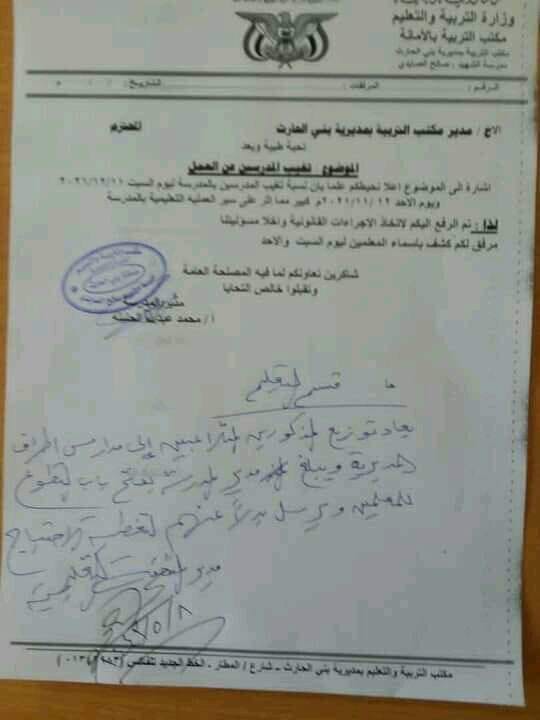 وزارة التربية والتعليم
مكتب التربية بالأمانة
مكتب التربية بمديرية بني الحارث
مدرسة الشهيد : صالح الصايدي
الرقم : المرفقات : التاريخ : / / م
الاخ / مدير مكتب التربية بمديرية بني الحارث المحترم
تحية طيبة وبعد
الموضوع تغيب المدرسين عن العمل
اشارة الى الموضوع اعلا نحيطكم علما بان نسبة تغيب المدرسين بالمدرسة ليوم السبت
ويوم الاحد ٢٠٢١/١١/١٢م كبير مما اثر على سير العمليه التعليمية بالمدرسة
لذا : تم الرفع اليكم لاتخاذ الاجراءات القانونية واخلا مسؤليتنا
مرفق لكم كشف باسماء المعلمين ليوم السبت والاحد
شاكرين تعاونكم لما فيه المصلحة العامة
وتقبلوا خالص التحايا
مدير المدرسة
أ / محمد
قسم التعليم
يعاد توزيع المذكورين المتغيبين إلى مدارس اطراف
المديرية ويبلغ مدير المدرسة بفتح باب التطوع
للمعلمين ويرسل بدلاً عنهم لتغطية الاحتياج
مدير
مكتب التربية والتعليم بمديرية بني الحارث – شارع / المطار - الخط الجديد تلفاكس